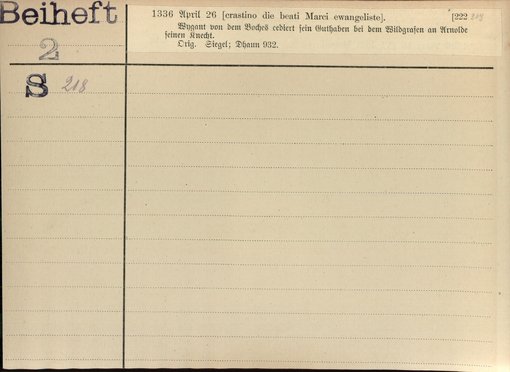 Beiheft
2
S 218
1336 April 26 [crastino die beati Marci ewangeliste]. [222
Wygant von dem Boches cediert sein Guthaben bei dem Wildgrafen an Arnolde
seinen Knecht.
Orig. Siegel; Dhaun 932.